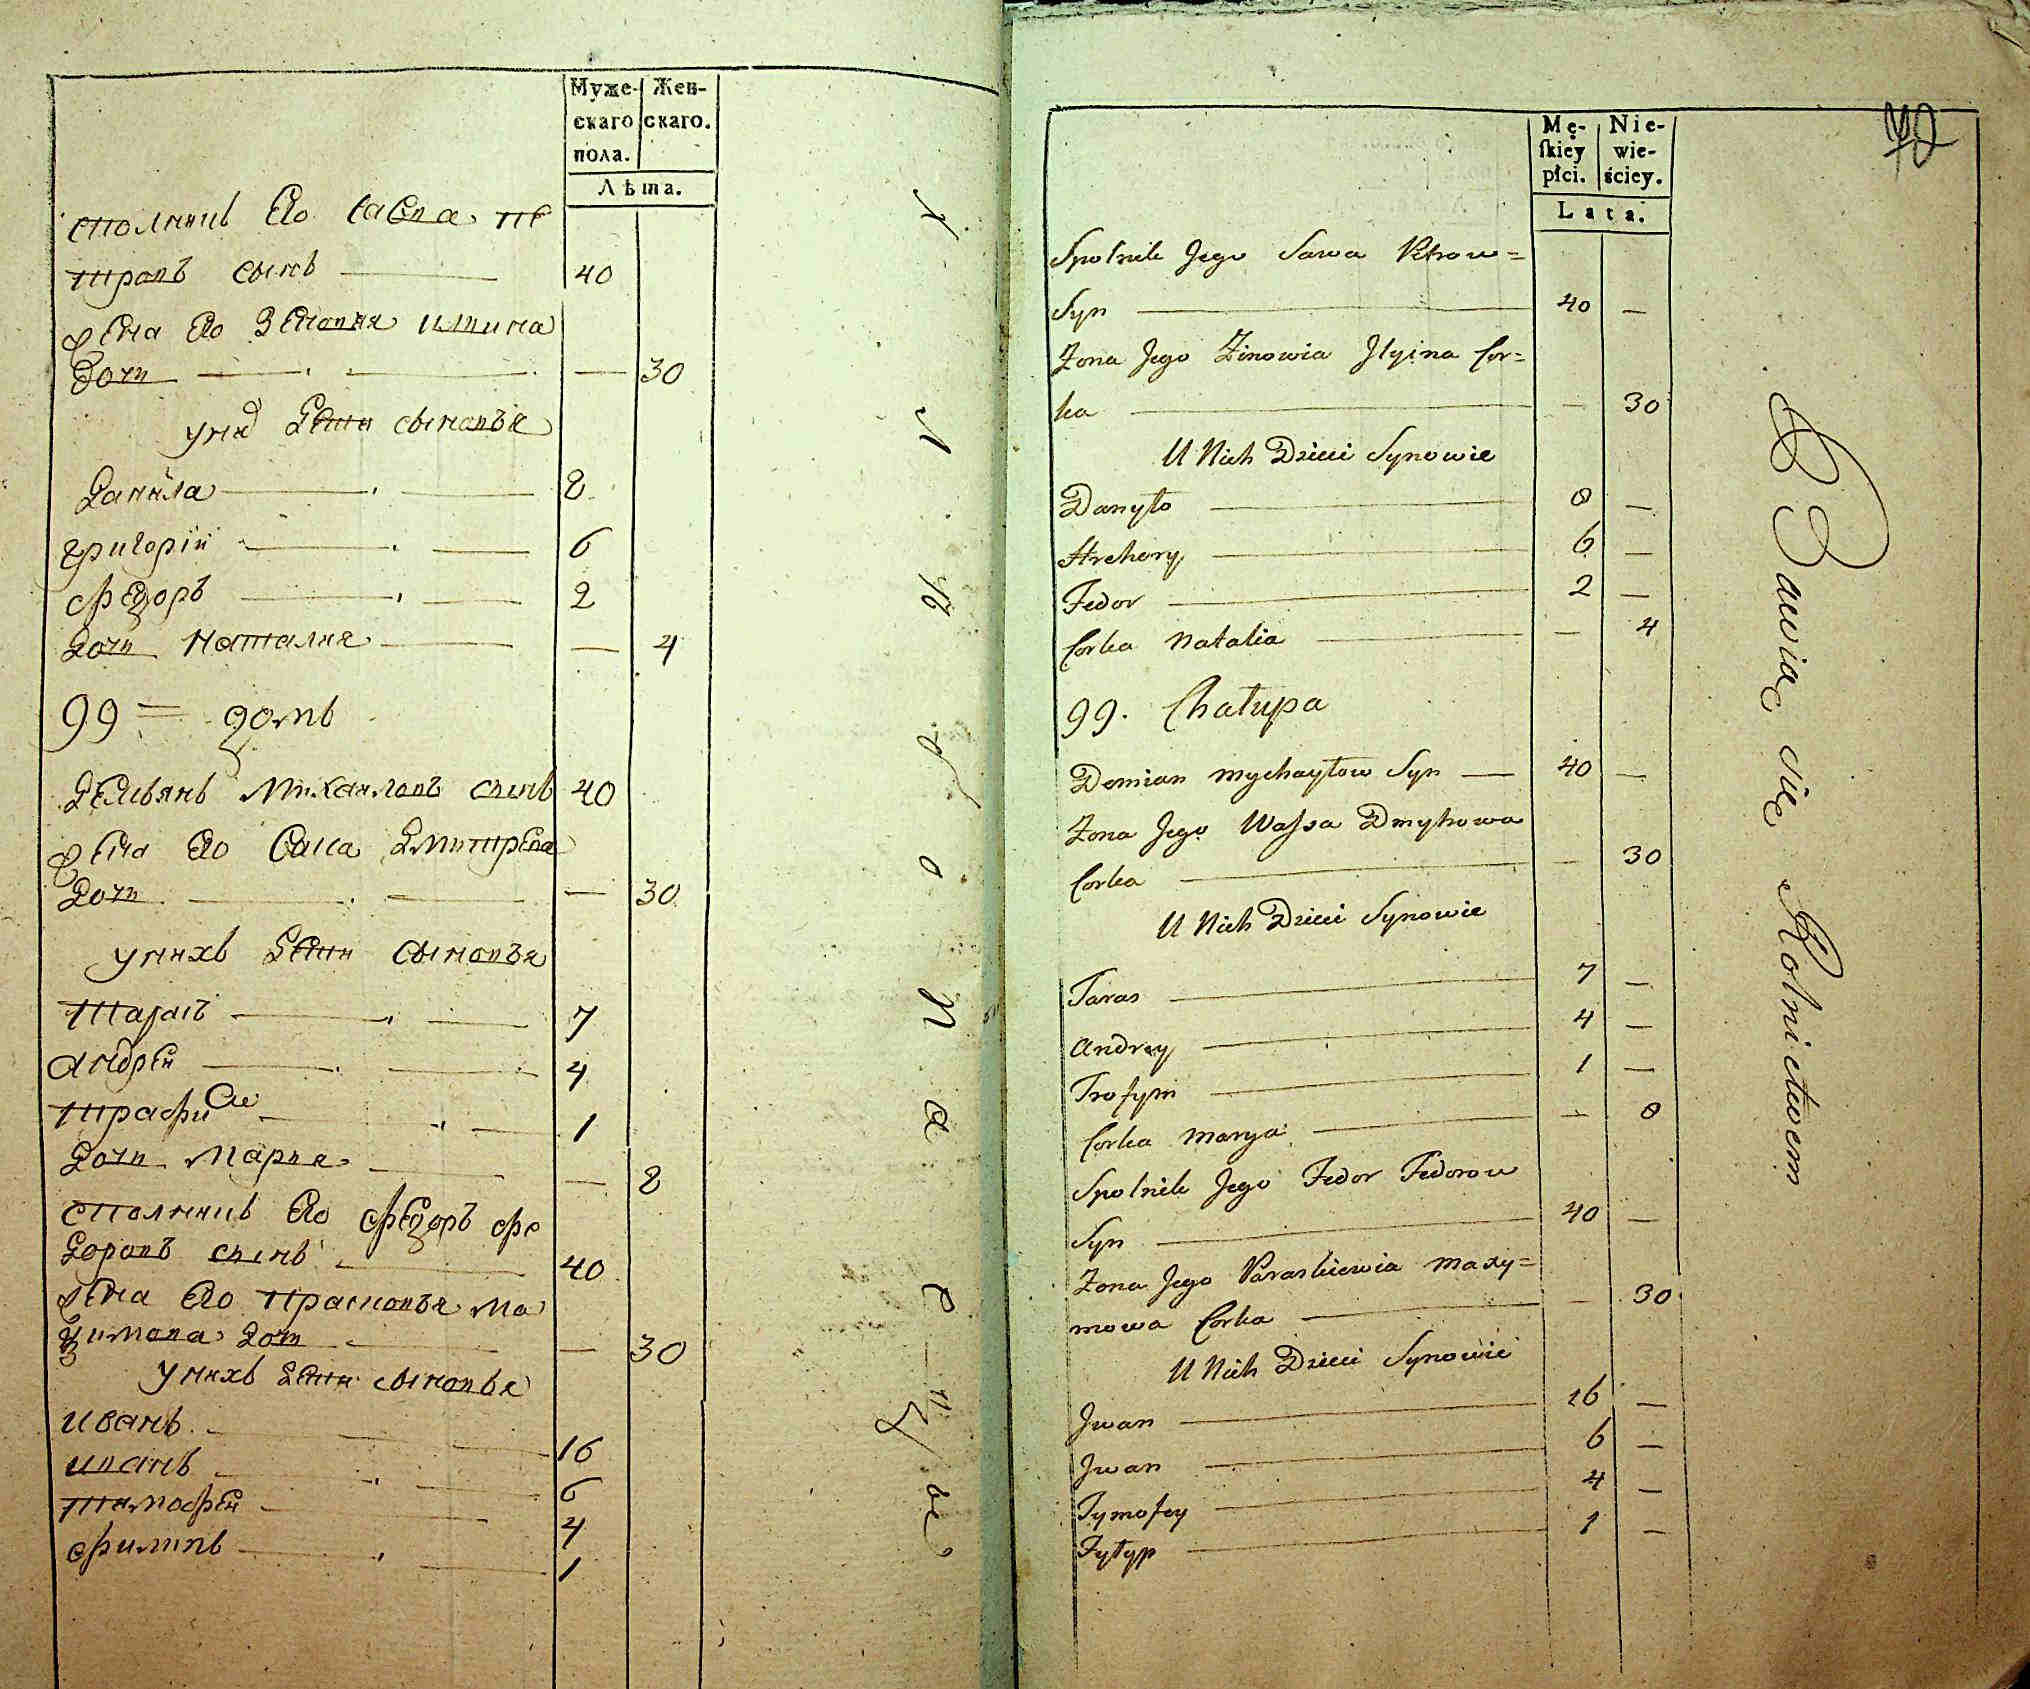 Муже-
скаго
пола.
Жен-
скаго.
Лѣта.
сполникъ Его Савва пе
тровъ сынъ 40
жена Его Зеновия илина
дочь — 30
у них дети сыновья
данила 8
григорiй 6
федоръ 2
дочь наталия — 4
99 = домъ
демьянъ михаиловъ сынъ 40
жена Его Васса дмитрева
дочь — 30
у нихъ дети сыновья
тарасъ 7
андрей 4
трафим 1
дочь мария — 8
сполникъ Его федоръ фе
доровъ сынъ 40
жена Его прасковья ма
ѯимова доч — 30
у нихъ дети сыновья
иванъ 16
иванъ 6
тимофей 4
филипъ 1
Mę-
ſkiey
płci.
Nie-
wie-
ściey.
Lata.
42
Spolnik Jego Sawa Petrow=
Syn 40 —
Zona Jego Zinowia Jlyina Cor=
ka — 30
U Nich Dzieci Synowie
Danyło 8 —
Hrehory 6 —
Fedor 2 —
Corka Natalia — 4
99. Chałupa
Demian Mychayłow Syn 40 —
Zona Jego Wassa Dmytrowa
Corka — 30
U Nich Dzieci Synowie
Taras 7 —
Andrey 4 —
Trofym 1 —
Corka Marya — 8
Spolnik Jego Fedor Fedorow
Syn 40 —
Zona Jego Paraskiewia Maxy=
mowa Corka — 30
U Nich Dzieci Synowie
Jwan 16 —
Jwan 6 —
Tymofey 4 —
Fyłyp 1 —
Bawią się Rolnictwem